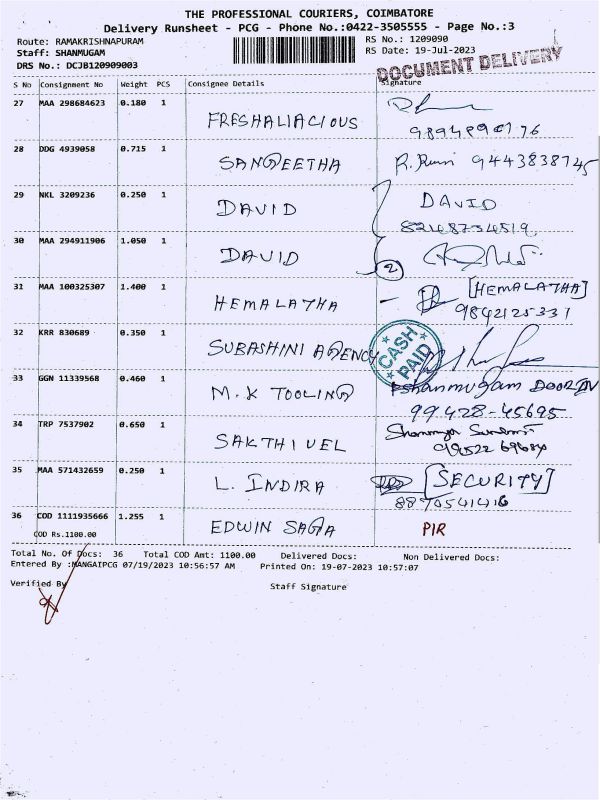 THE PROFESSIONAL COURIERS, COIMBATORE
Delivery Runsheet - PCG - Phone No.:0422-3505555 - Page No.:3
Route: RAMAKRISHNAPURAM RS No.: 1209090
Staff: SHANMUGAM RS Date: 19-Jul-2023
DRS No.: DCJB120909003 DOCUMENT DELIVERY
S No Consignment No Weight PCS Consignee Details Signature
27 MAA 298684623 0.180 1 FRESHALIACIOUS
28 DDG 4939058 0.715 1 SANGEETHA 9443838745
29 NKL 3209236 0.250 1 DAVID DAVID
8248734519
30 MAA 294911906 1.050 1 DAVID 2
31 MAA 100325307 1.400 1 HEMALATHA [HEMALATHA]
9842125331
32 KRR 830689 0.350 1 SUBASHINI AGENCY CASH PAID
33 GGN 11339568 0.460 1 M.K TOOLING Shanmugam
99428-45695
34 TRP 7537902 0.650 1 SAKTHIVEL
35 MAA 571432659 0.250 1 L. INDIRA [SECURITY]
8870541416
36 COD 1111935666 1.255 1 EDWIN SAGA PIR
COD Rs.1100.00
Total No. Of Docs: 36 Total COD Amt: 1100.00 Delivered Docs: Non Delivered Docs:
Entered By :MANGAIPCG 07/19/2023 10:56:57 AM Printed On: 19-07-2023 10:57:07
Verified By Staff Signature